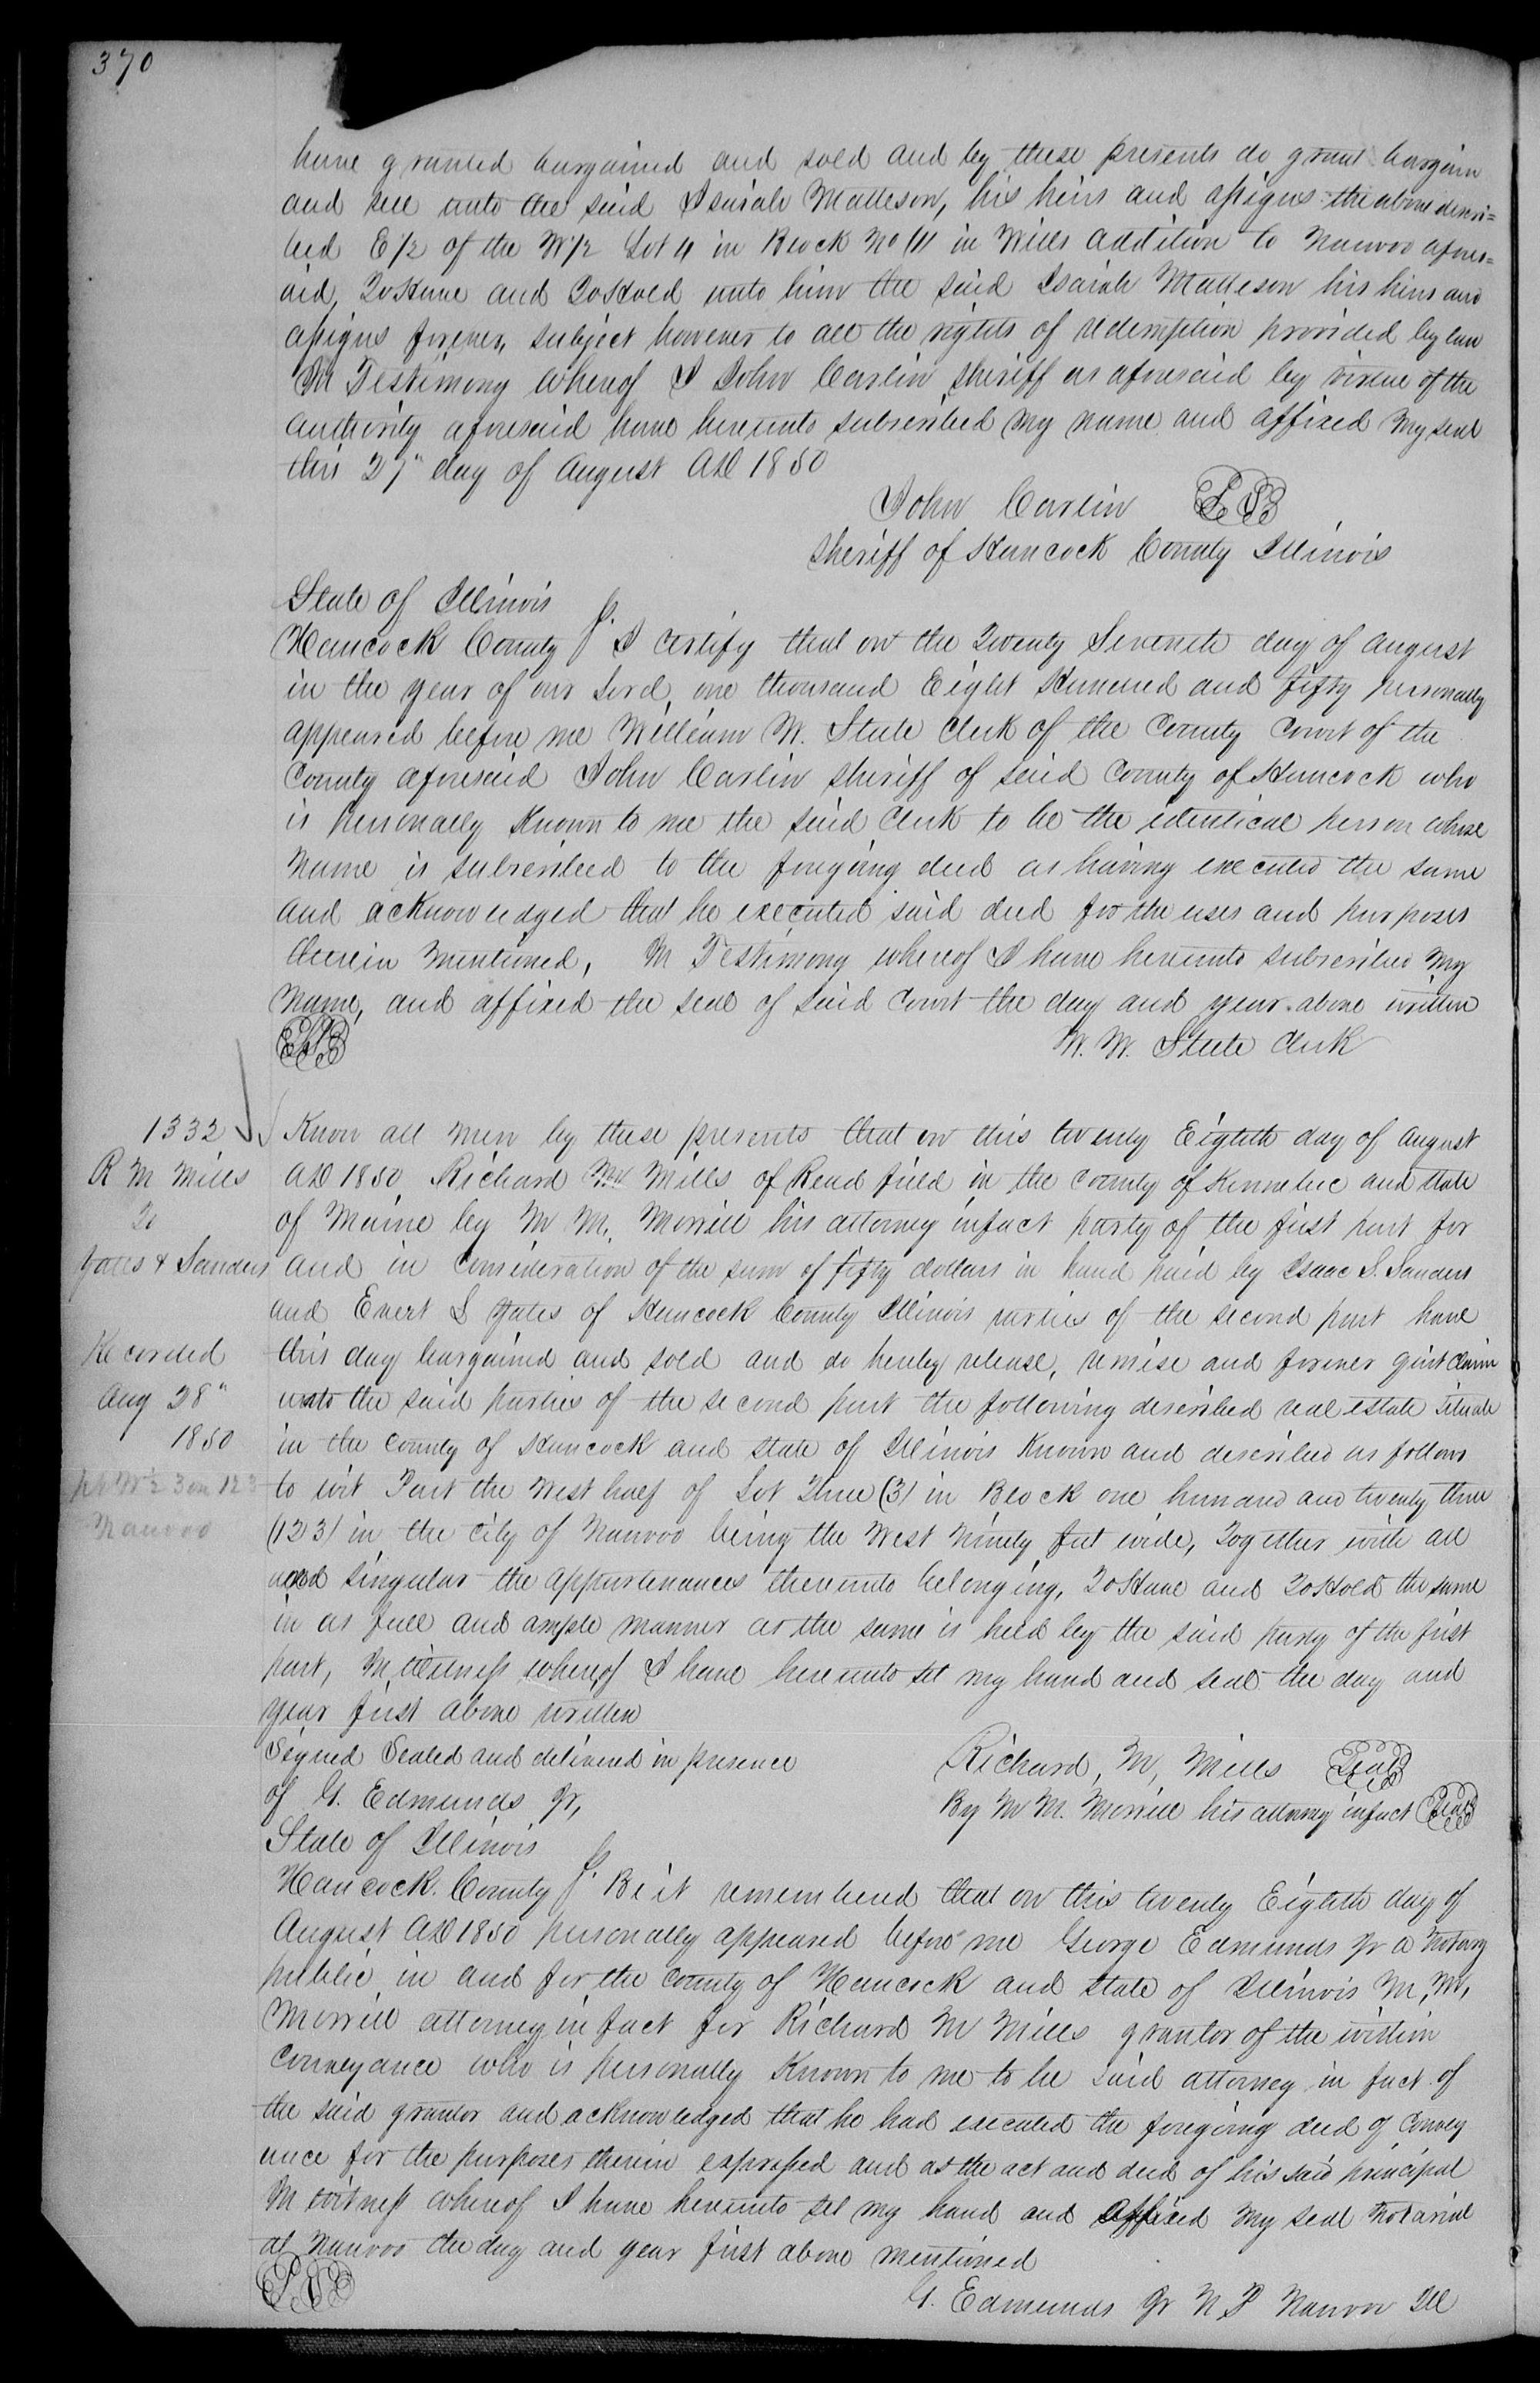 370
have granted bargained and sold and by these presents do grant bargain
and sell unto the said Isaiah Matteson, his heirs and assigns the above descri=
bed E 1/2 of the W 1/2 Lot 4 in Block No in Wells addition to Nauvoo afores=
aid, To Have and To Hold unto him the said Isaiah Matteson his heirs and
assigns forever, subject however to all the rights of redemption provided by law
In Testimony whereof I John Carlin sheriff as aforesaid by virtue of the
authority aforesaid have hereunto subscribed my name and affixed my seal
this 27" day of August AD 1850
John Carlin LS
Sheriff of Hancock County Illinois
State of Illinois
Hancock County } I certify that on the Twenty Seventh day of August
in the year of our Lord, one thousand Eight Hundred and fifty personally
appeared before me William W. Steele Clerk of the County Court of the
County aforesaid John Carlin sheriff of said County of Hancock who
is personally Known to me the said Clerk to be the identical person whose
name is subscribed to the foregoing deed as having executed the same
and acknowledged that he executed said deed for the uses and purposes
therein mentioned, In Testimony whereof I have hereunto subscribed my
name, and affixed the seal of said Court the day and year above written
LS W. W. Steele Clerk
1332
R M Mills
To
Yates & Sanders
Recorded
Aug 28"
1850
pt W 1/2 3 in 123
Nauvoo
Know all men by these presents that on this twenty Eighth day of August
AD 1850 Richard M Mills of Read field in the County of Kennebec and state
of Maine by M M. Morrill his attorney infact party of the first part for
and in Consideration of the sum of fifty dollars in hand paid by Isaac S. Sanders
and Evert S Yates of Hancock County Illinois parties of the second part have
this day bargained and sold and do hereby release, remise and forever quit claim
unto the said parties of the second part the following described real estate situate
in the County of Hancock and State of Illinois Known and described as follows
to wit Part the West half of Lot Three (3) in Block one hundred and twenty three
(123) in the City of Nauvoo being the West Ninety feet wide, Together with all
and singular the appurtenances thereunto belonging, To Have and To Hold the same
in as full and ample manner as the same is held by the said party of the first
part, In witness whereof I have hereunto set my hand and seal the day and
year first above written
Signed Sealed and delivered in presence
of G. Edmunds Jr,
Richard, M, Mills Seal
By M M. Morrill his attorney infact Seal
State of Illinois
Hancock County } Be it remembered that on this twenty Eighth day of
August AD 1850 personally appeared before me George Edmunds Jr a Notary
public in and for the County of Hancock and state of Illinois M, M,
Morrill attorney in fact for Richard M Mills grantor of the within
conveyance who is personally Known to me to be said attorney in fact of
the said grantor and acknowledged that he had executed the foregoing deed of convey
ance for the purposes therein expressed and as the act and deed of his said principal
In witness whereof I have hereunto set my hand and affixed my seal Notarial
at Nauvoo the day and year first above mentioned
LS G. Edmunds Jr N P Nauvoo Ill